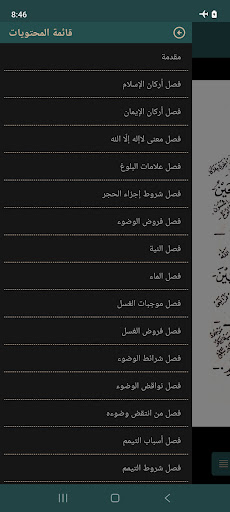 8:46
قائمة المحتويات
مقدمة
فصل أركان الإسلام
فصل أركان الإيمان
فصل معنى لاإله إلّا الله
فصل علامات البلوغ
فصل شروط إجزاء الحجر
فصل فروض الوضوء
فصل النية
فصل الماء
فصل موجبات الغسل
فصل فروض الغسل
فصل شرائط الوضوء
فصل نواقض الوضوء
فصل من انتقض وضوءه
فصل أسباب التيمم
فصل شروط التيمم